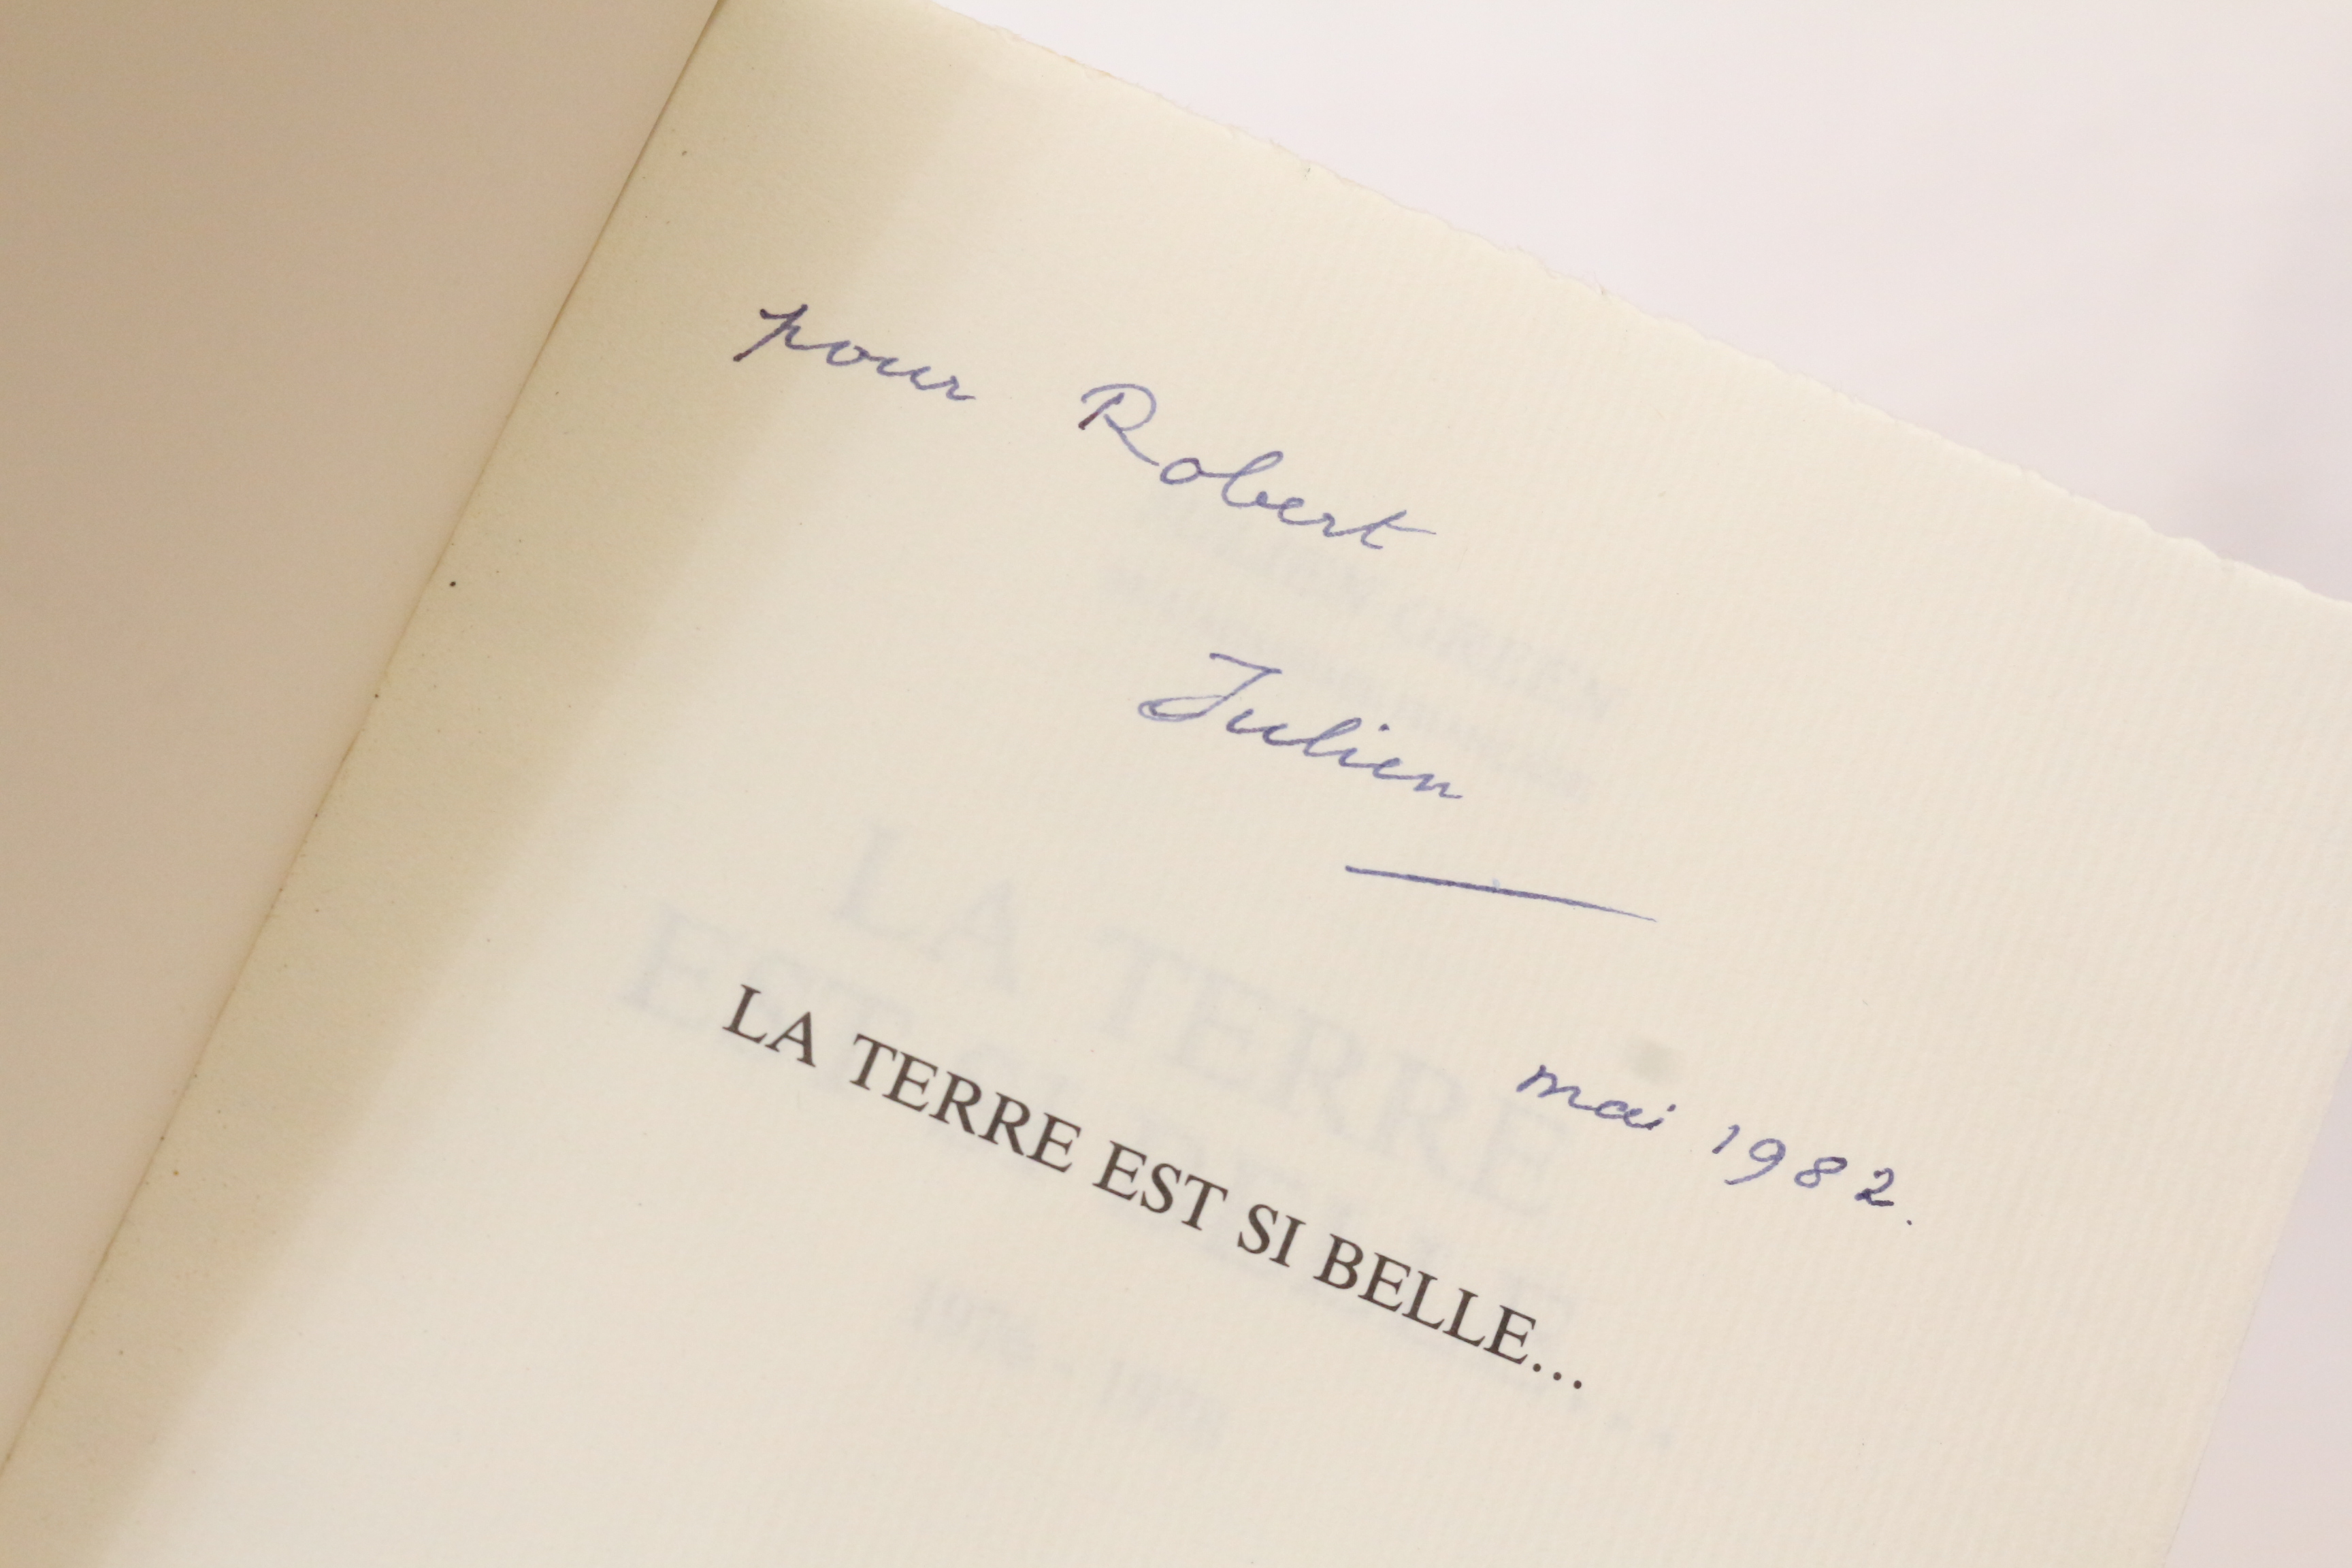 pour Robert
Julien
mai 1982.
LA TERRE EST SI BELLE...